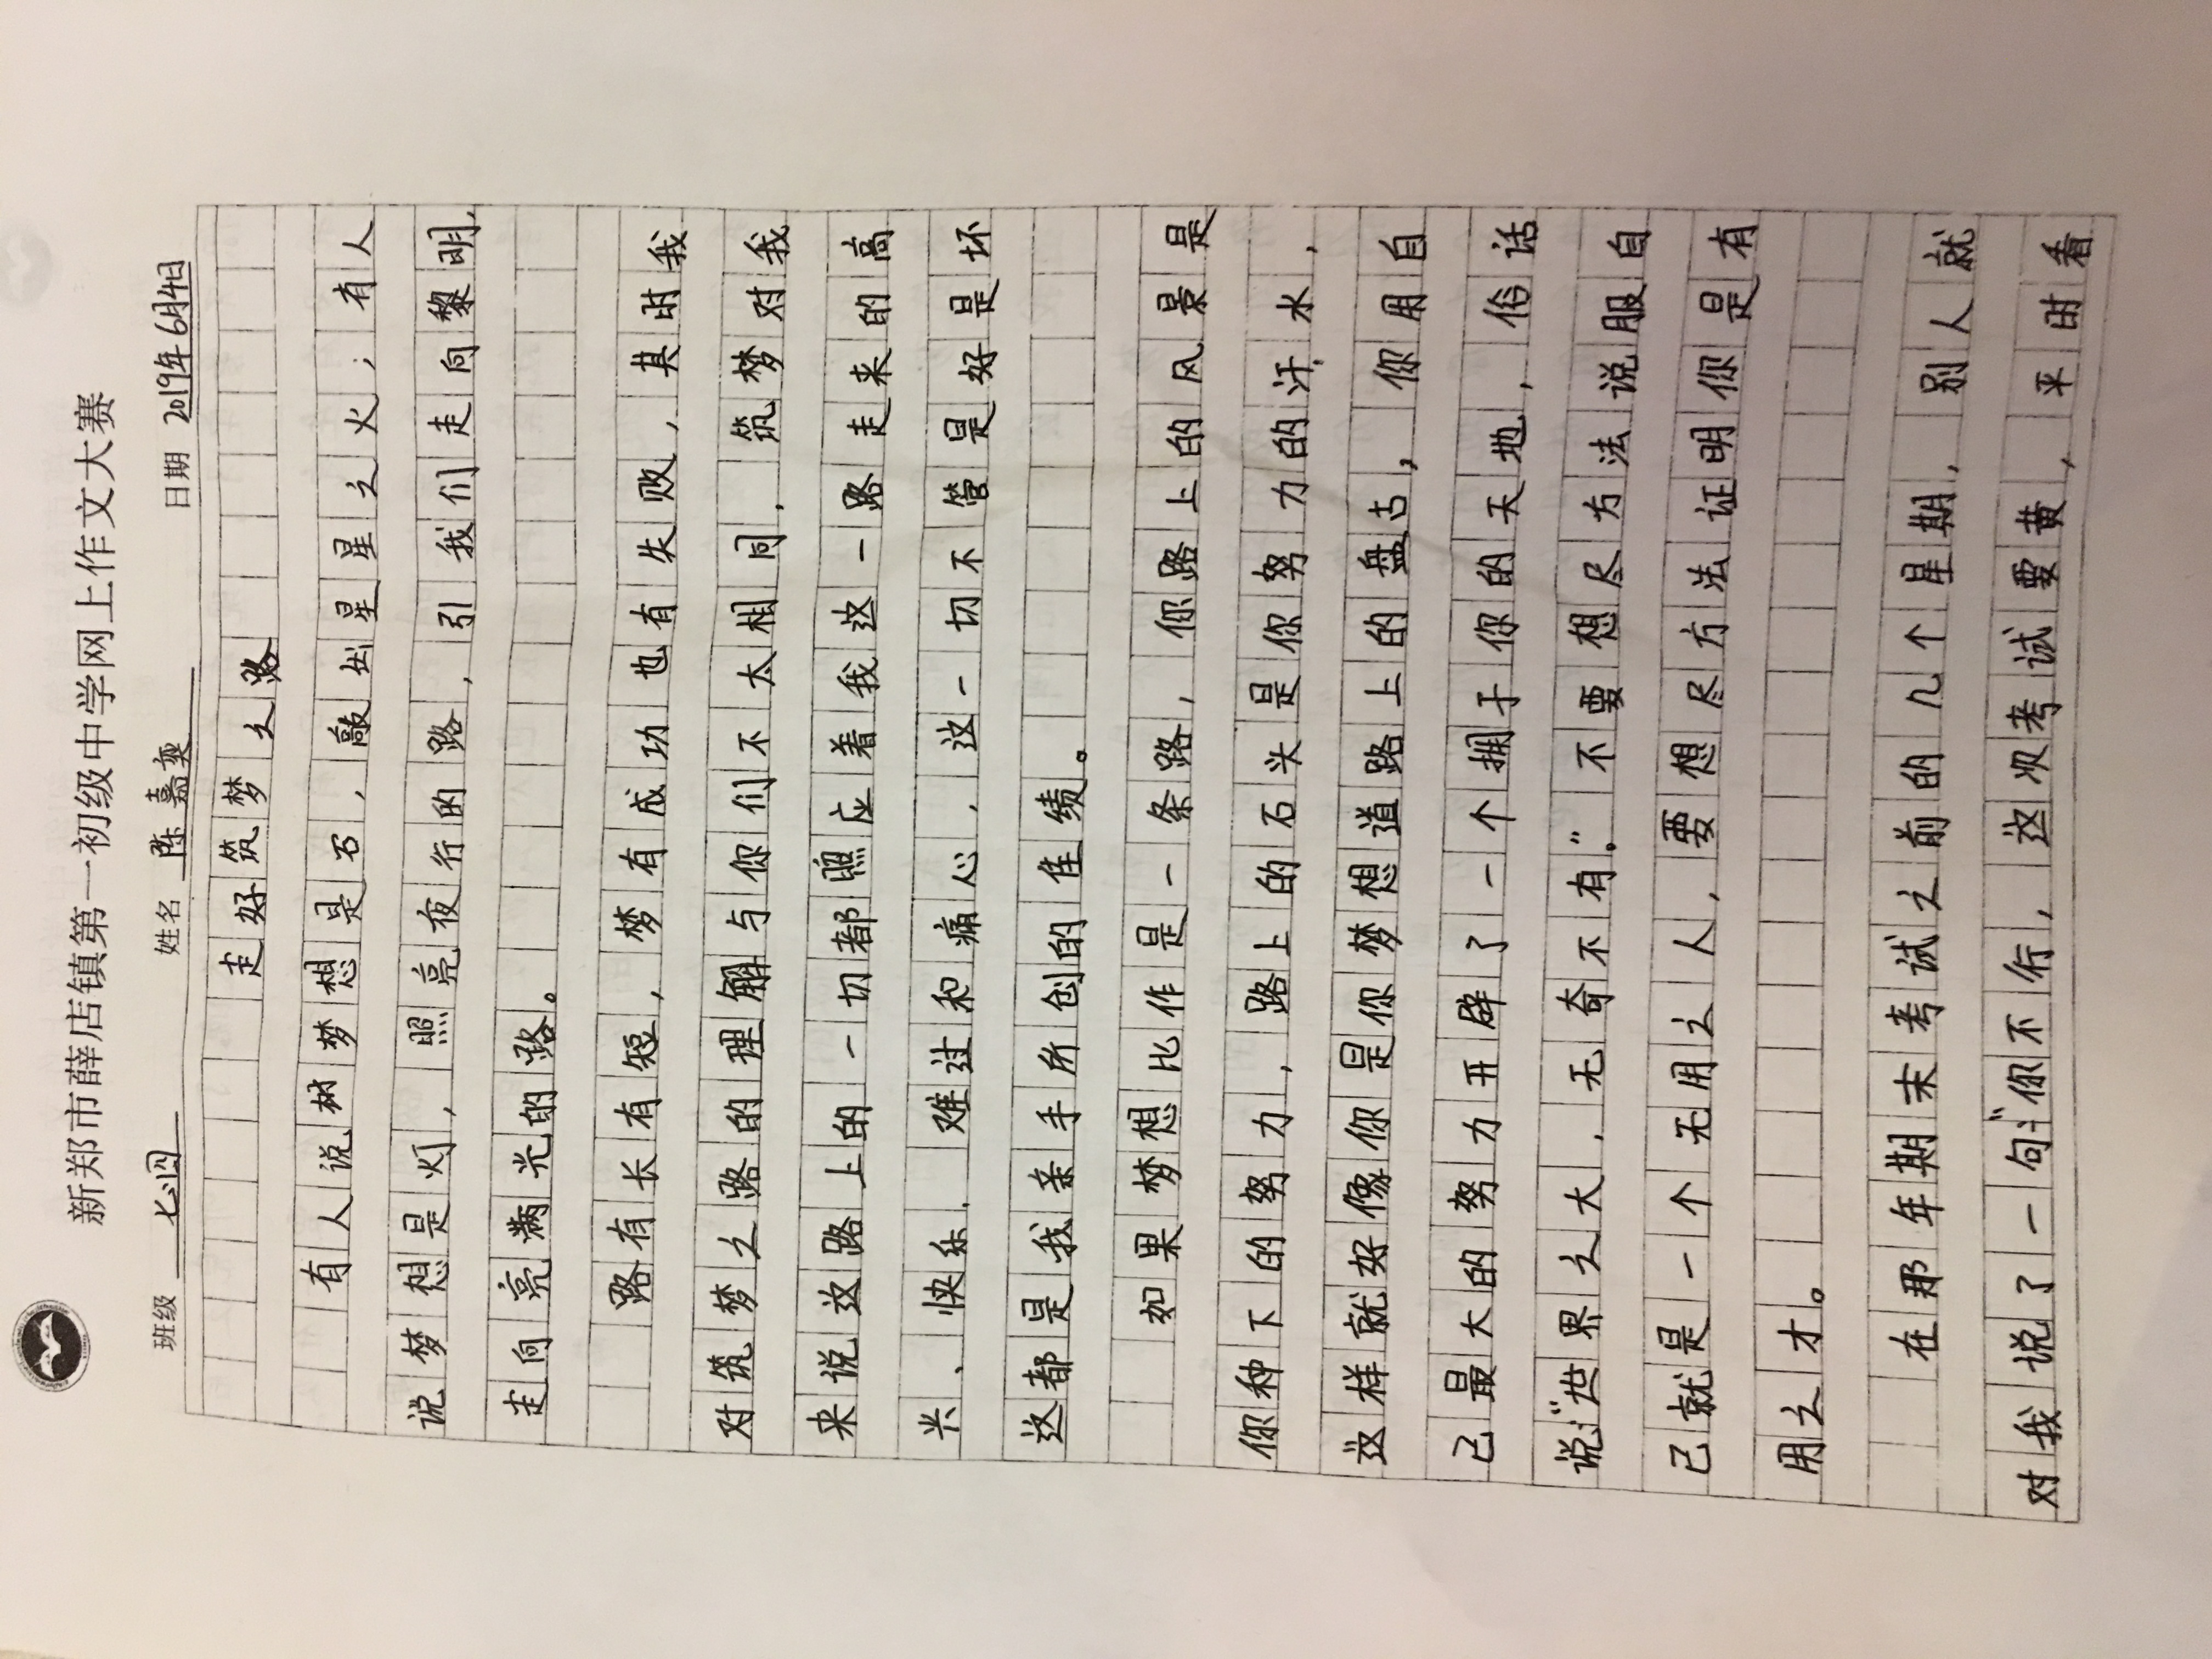 新郑市薛店镇第一初级中学网上作文大赛
班级 七四 姓名 陈嘉奕 日期 2019年6月4日
走好筑梦之路
有人说树梦想是石,敲出星星之火;有人
说梦想是灯,照亮夜行的路,引我们走向黎明,
走向亮满光的路。
路有长有短,梦有成功也有失败,其时我
对筑梦之路的理解与你们不太相同,筑梦对我
来说这路上的一切都照应着我这一路走来的高
兴、快乐、难过和痛心,这一切不管是好是坏
这都是我亲手所创的佳绩。
如果梦想比作是一条路,你路上的风景是
你种下的努力,路上的石头是你努力的汗水,
这样就好像你是你梦想道路上的盘古,你用自
己最大的努力开辟了一个拥于你的天地,俗话
说:“世界之大,无奇不有。”不要想尽方法说服自
己就是一个无用之人,要想尽方法证明你是有
用之才。
在那年期末考试之前的几个星期,别人就
对我说了一句:“你不行,这次考试要黄,平时看